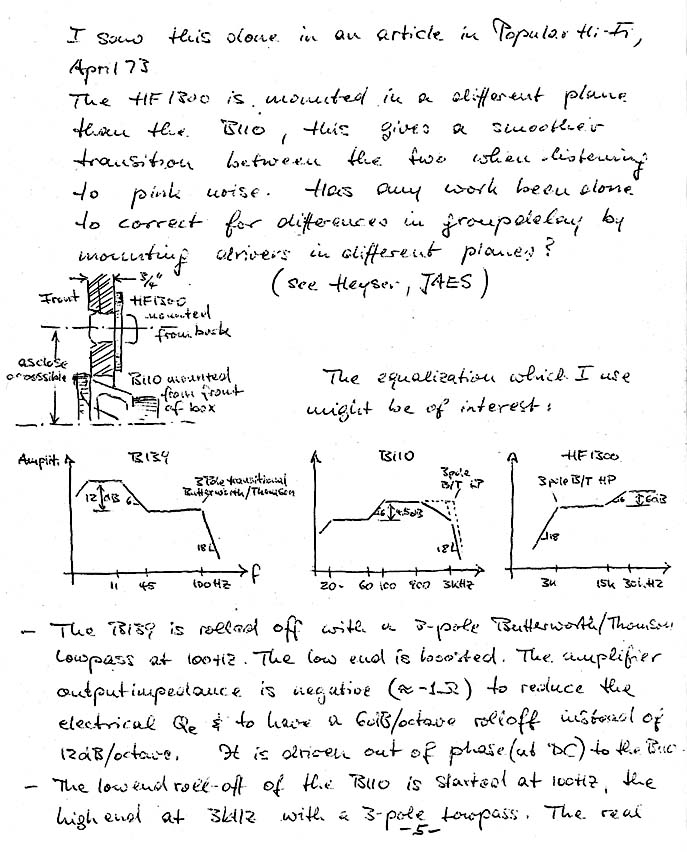 I saw this done in an article in Popular Hi-Fi,
April 73
The HF1300 is mounted in a different plane
than the B110, this gives a smoother
transition between the two when listening
to pink noise. Has any work been done
to correct for differences in groupdelay by
mounting drivers in different planes?
(see Heyser, JAES)
3/4"
Front
HF1300
mounted
from back
as close
as possible
B110 mounted
from front
of box
The equalization which I use
might be of interest:
Amplit.
B139
3 Pole transitional
Butterworth/Thomson
12 dB
6
18
11 45 100Hz f
B110
3 pole
B/T LP
6
4.5dB
18
20 60 100 800 3kHz
A
HF1300
3 pole B/T HP
6
6dB
18
3k 15k 30kHz
- The B139 is rolled off with a 3-pole Butterworth/Thomson
lowpass at 100Hz. The low end is boosted. The amplifier
output impedance is negative (≈ -1Ω) to reduce the
electrical Qe & to have a 6dB/octave rolloff instead of
12dB/octave. It is driven out of phase (at DC) to the B110.
- The low end roll-off of the B110 is started at 100Hz, the
high end at 3kHz with a 3-pole lowpass. The real
-5-